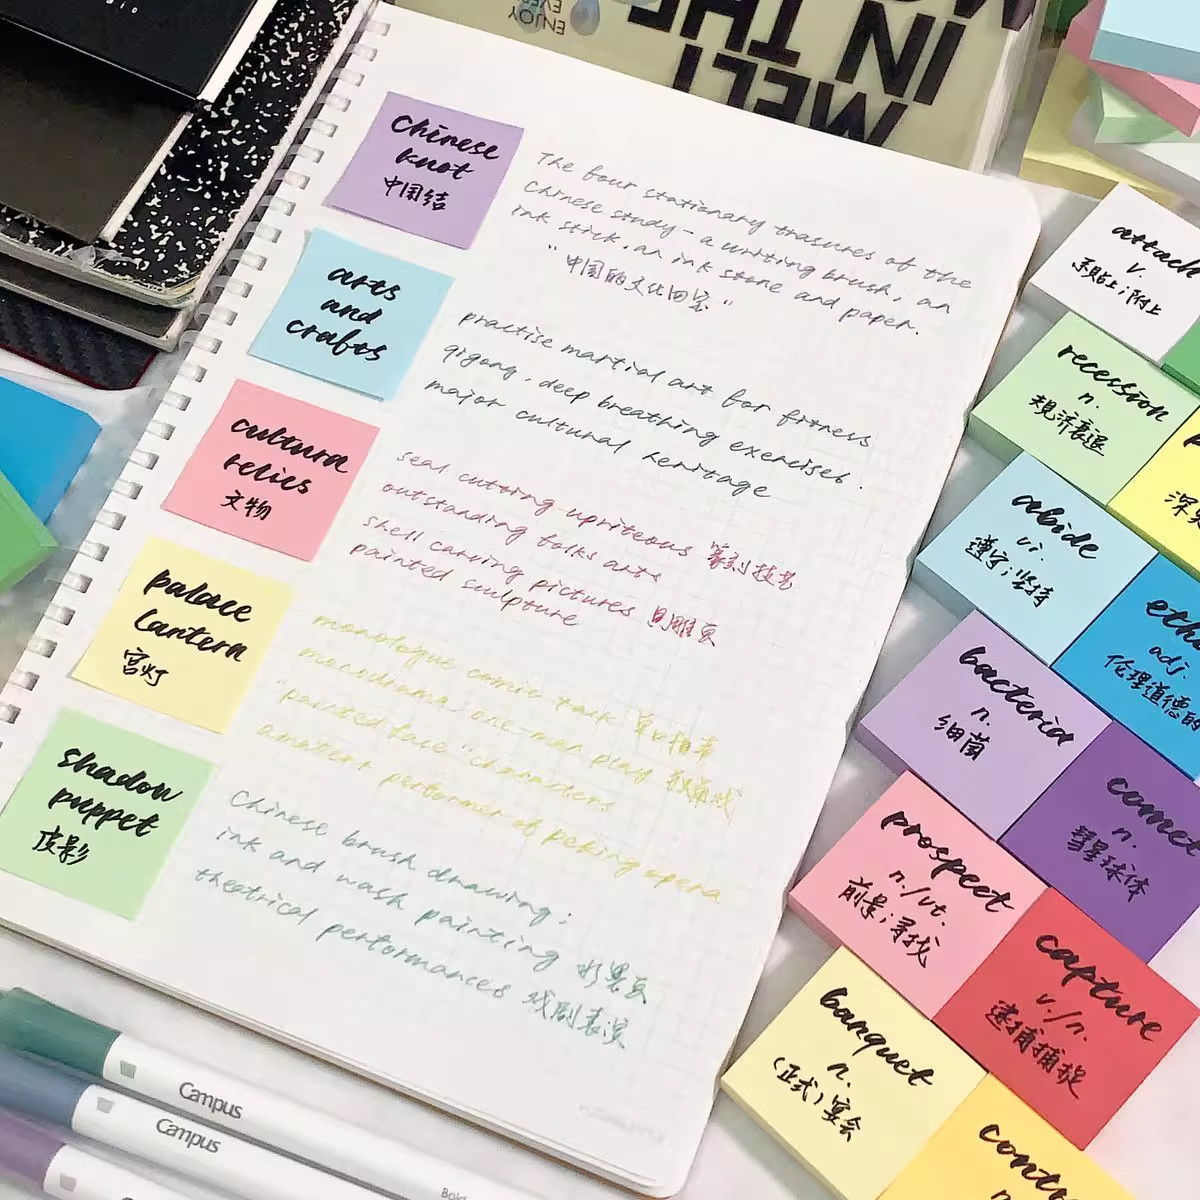 Chinese
knot
中国结
The four stationary trasures of the
Chinese study - a writing brush, an
ink stick, an ink stone and paper.
"中国的文化四宝"
arts
and
crafts
practise martial art for fitness
qigong, deep breathing exercises.
major cultural heritage
cultura
relics
文物
seal cutting upriteous 篆刻技艺
outstanding folks arts
shell carving pictures 贝雕页
painted sculpture
palace
lantern
宫灯
monologue comic talk 单口相声
monodrama, one-man play 独角戏
"painted face" characters
amateur performer of peking opera
shadow
puppet
皮影
Chinese brush drawing;
ink and wash painting 水墨页
theatrical performances 戏剧表演
attach
v.
系贴上；附上
recession
n.
规济衰退
abide
vi.
遵守；坚持
eth
adj.
伦理道德的
bacteria
n.
细菌
comet
n.
彗星球体
prospect
n./vt.
前景；寻找
capture
v./n.
逮捕捕捉
banquet
n.
（正式）宴会
cont
深
MELT
IN THE
ENJOY
Campus
Campus
Bold